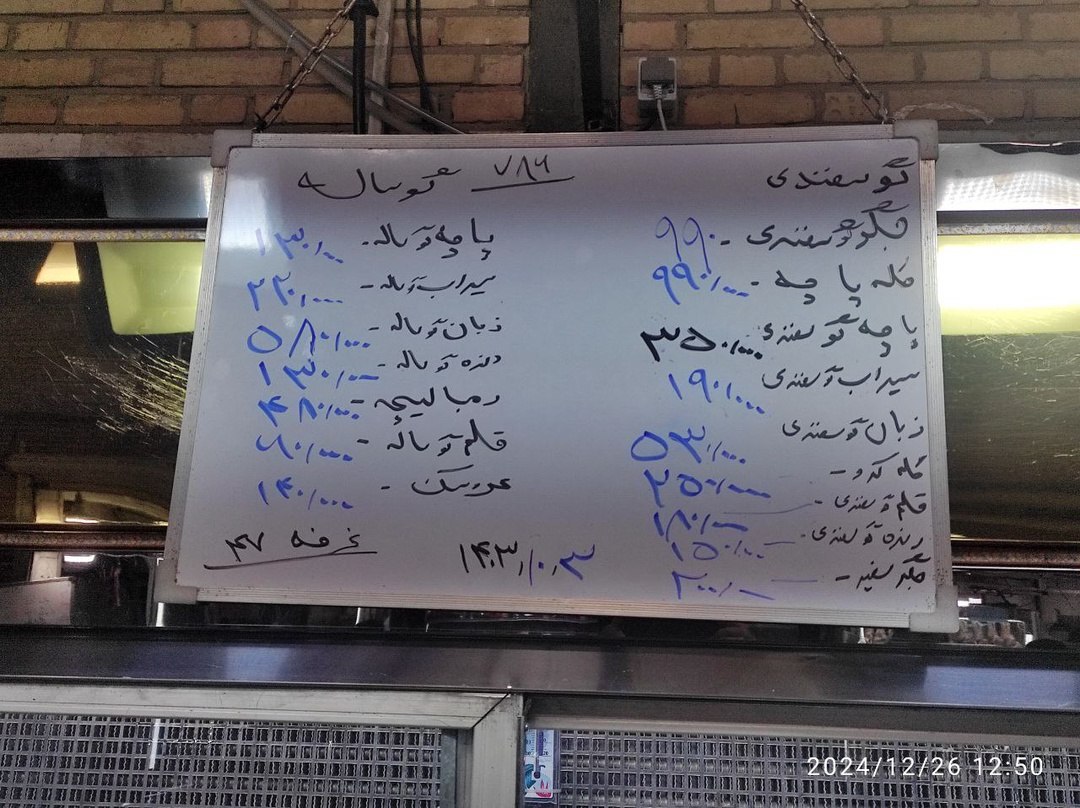 ۷۸۶
گوسفندی
جگر گوسفندی - ۹۹۰
کله پا چه - ۹۹۰/۰۰۰
پاچه گوسفندی ۳۵۰/۰۰۰
سیراب گوسفندی ۱۹۰/۰۰۰
زبان گوسفندی ۵۳۰/۰۰۰
کله گرد - ۲۵۰/۰۰۰
قلم گوسفندی - ۱۸۰/۰۰
ریزه گوسفندی - ۱۵۰/۰۰
جگر سفید - ۲۰۰/۰۰
گوساله
پاچه گوساله - ۱۳۰/۰۰
سیراب گوساله - ۲۲۰/۰۰۰
زبان گوساله - ۵۸۰/۰۰۰
ریزه گوساله - ۱۳۰/۰۰
دمبالیچه ۴۸۰/۰۰۰
قلم گوساله - ۶۰/۰۰۰
- ۱۴۰/۰۰۰
۱۴۰۳/۱۰/۰۳
غرفه ۴۷
2024/12/26 12:50